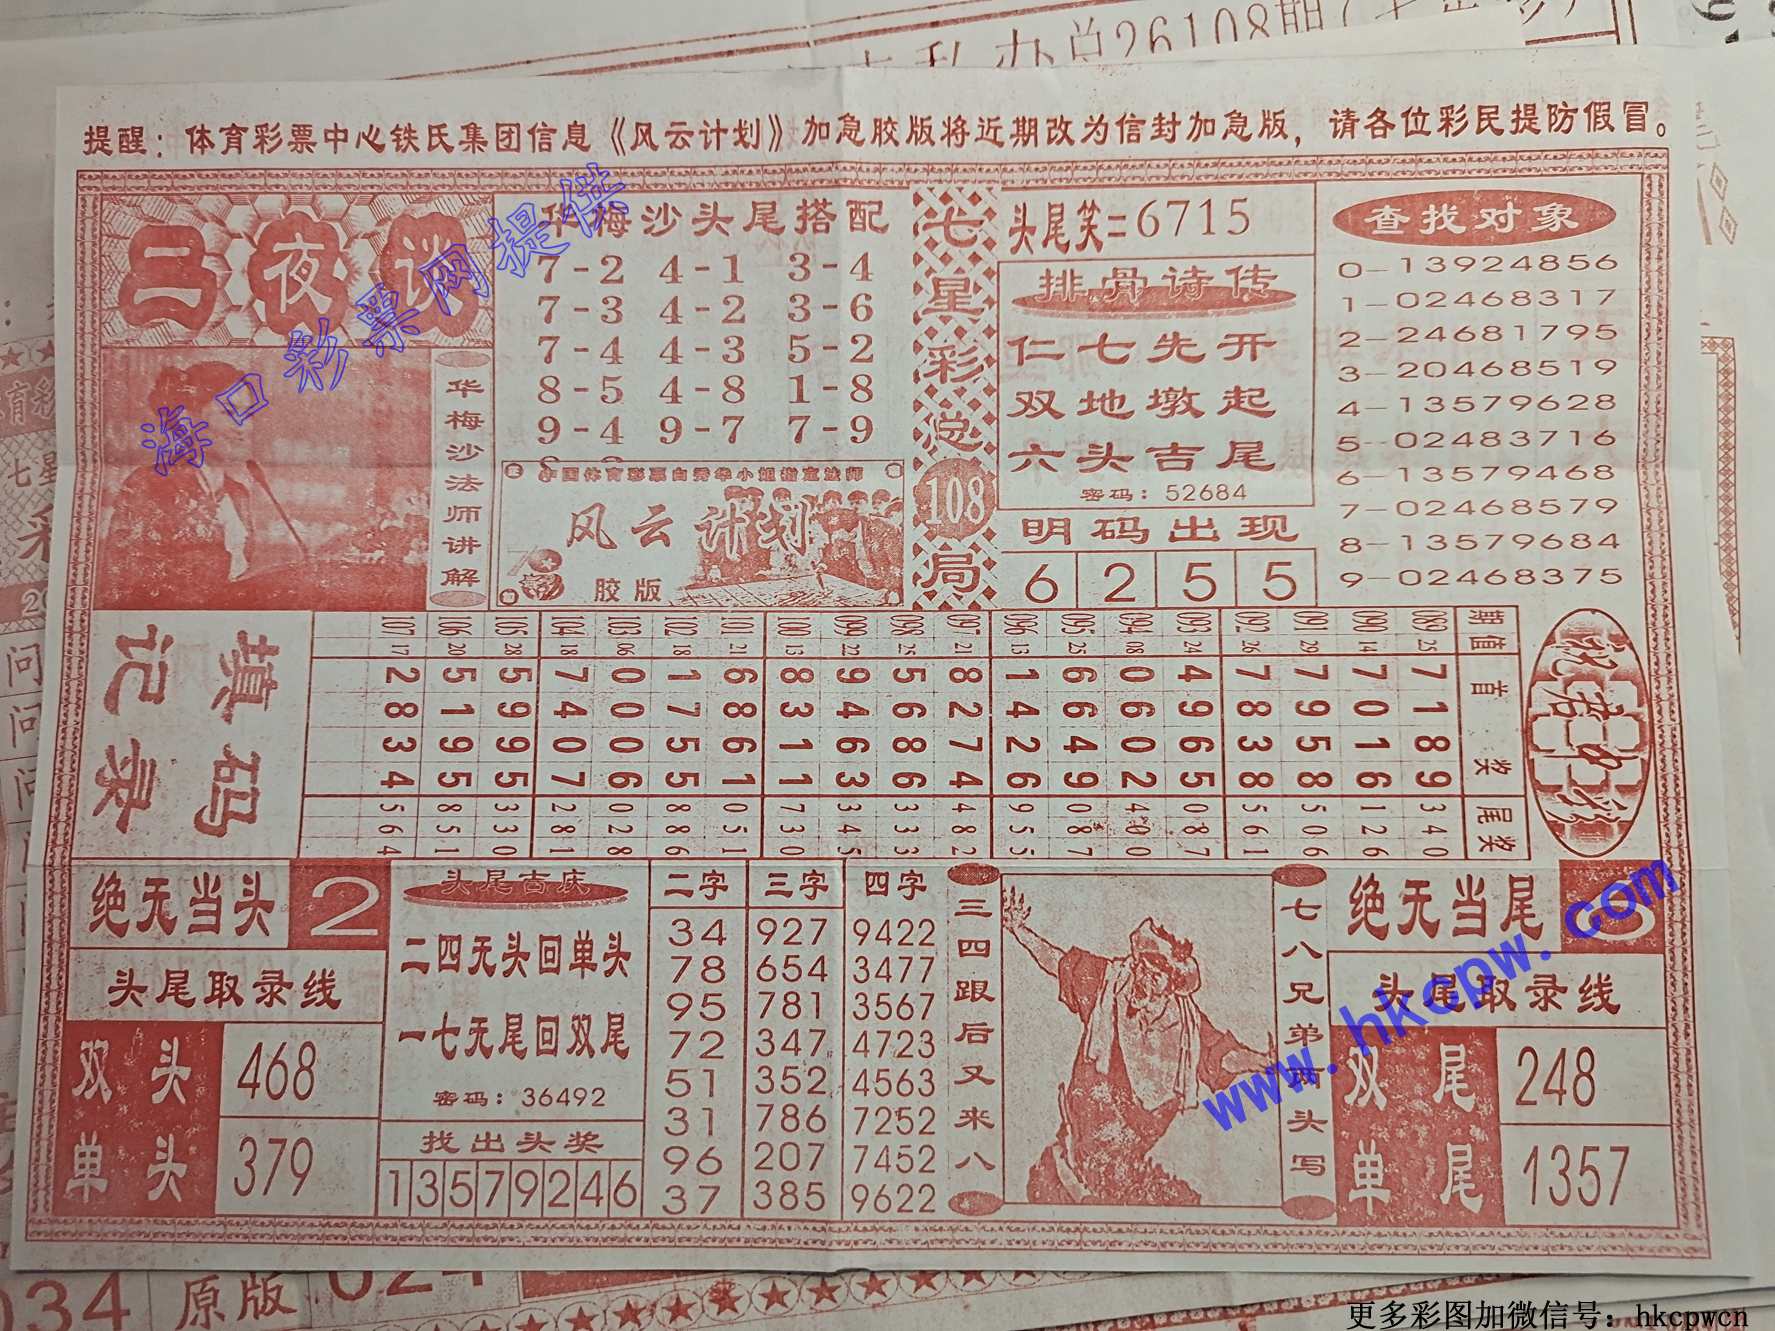 办总26108期
提醒：体育彩票中心铁氏集团信息《风云计划》加急胶版将近期改为信封加急版，请各位彩民提防假冒。
二夜谈
华梅沙法师讲解
华梅沙头尾搭配
7-2 4-1 3-4
7-3 4-2 3-6
7-4 4-3 5-2
8-5 4-8 1-8
9-4 9-7 7-9
中国体育彩票白秀华小姐指定法师
风云计划
胶版
七星彩总108局
头尾笑=6715
排骨诗传
仁七先开
双地墩起
六头吉尾
密码：52684
明码出现
6 2 5 5
查找对象
0-13924856
1-02468317
2-24681795
3-20468519
4-13579628
5-02483716
6-13579468
7-02468579
8-13579684
9-02468375
填码记录
期 值 首奖 尾奖
089 25 7189 340
090 14 7016 126
091 29 7958 506
092 26 7838 561
093 24 4965 087
094 08 0602 400
095 25 6649 087
096 13 1426 955
097 21 8274 482
098 25 5686 333
099 22 9463 345
100 13 8311 730
101 21 6861 051
102 18 1755 886
103 06 0006 028
104 18 7407 281
105 28 5995 330
106 20 5195 851
107 17 2834 564
绝无当头 2
头尾取录线
双头 468
单头 379
头尾吉庆
二四无头回单头
一七无尾回双尾
密码：36492
找出头奖
13579246
二字 三字 四字
34 927 9422
78 654 3477
95 781 3567
72 347 4723
51 352 4563
31 786 7252
96 207 7452
37 385 9622
三四跟后又来八
七八兄弟两头写
绝无当尾
头尾取录线
双尾 248
单尾 1357
034 原版 024
海口彩票网提供
www.hkcpw.com
更多彩图加微信号：hkcpwcn